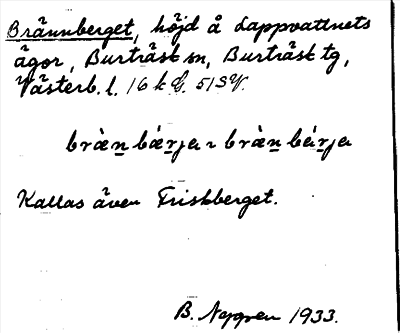 Brännberget, höjd å Lappvattnets
ägor, Burträsk sn, Burträsk tg,
Västerb. l. 16 k G. 51 SV.
bràn̲ bár̲ja ~ bràn̲ bár̲ja
Kallas även Friskberget.
B. Nygren 1933.